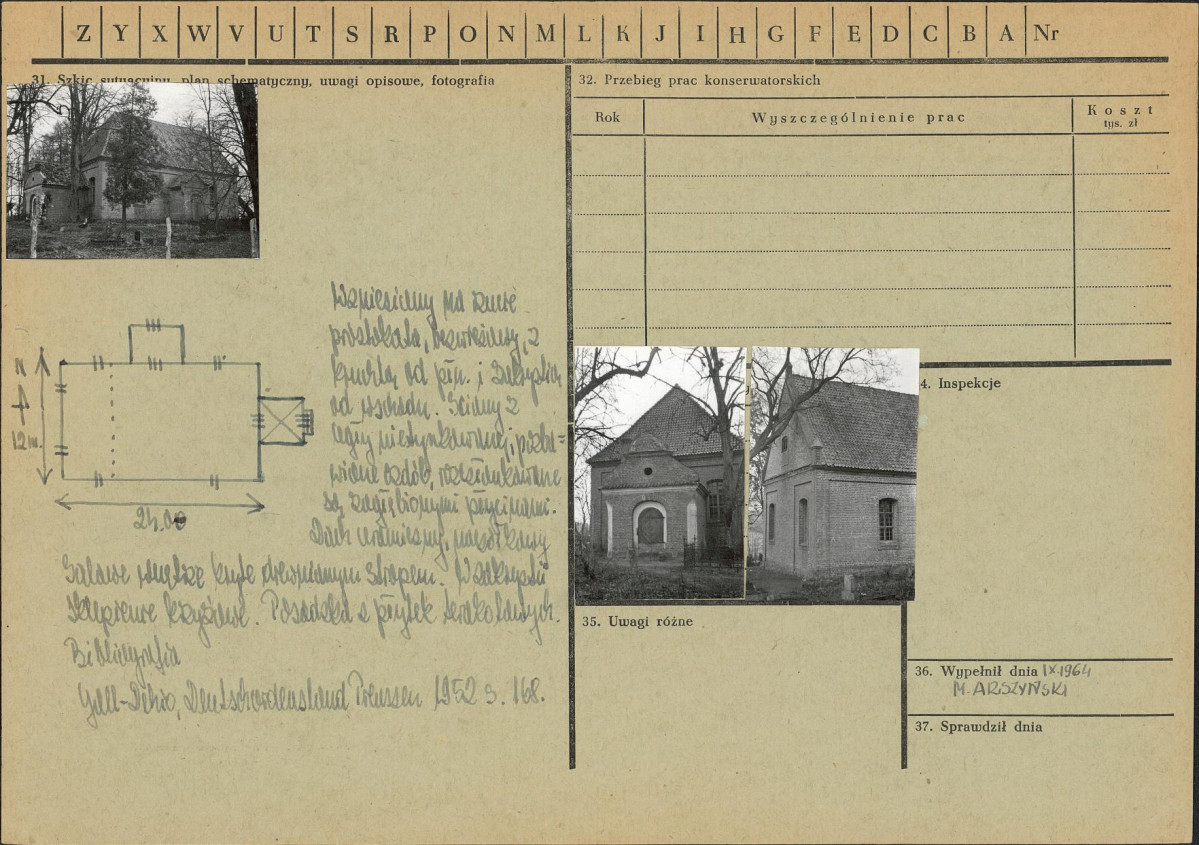 Z Y X W V U T S R P O N M L K J I H G F E D C B A Nr
31. Szkic sytuacyjny, plan schematyczny, uwagi opisowe, fotografia
N
12 m.
24.00
Wzniesiony na rzucie
prostokąta, bezwieżowy, z
kruchtą od płn. i zakrystią
od wschodu. Ściany z
cegły nietynkowanej, pozba-
wione ozdób, rozczłonkowane
są zagłębionymi płycinami.
Dach ceramiczny, naczółkowy
Salowe wnętrze kryte drewnianym stropem. W zakrystii
sklepienie krzyżowe. Posadzka z płytek terakotowych.
Bibliografia
Gall-Dehio, Deutschordensland Preussen 1952 s. 168.
32. Przebieg prac konserwatorskich
Rok
Wyszczególnienie prac
Koszt
tys. zł
4. Inspekcje
35. Uwagi różne
36. Wypełnił dnia IX.1964
M. ARSZYŃSKI
37. Sprawdził dnia